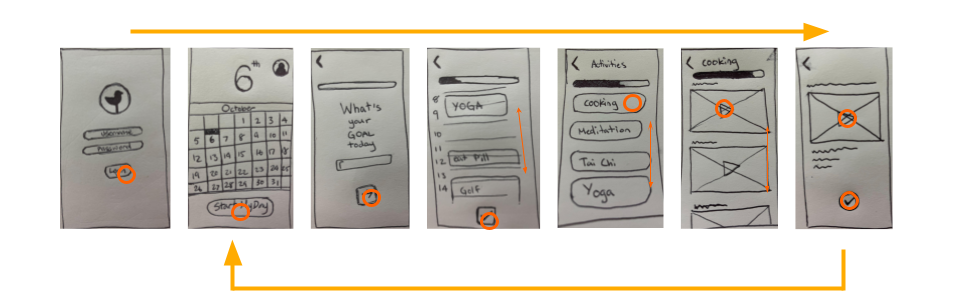 username
password
6th
October
1 2 3 4
5 6 7 8 9 10 11
12 13 14 15 16 17 18
19 20 21 22 23 24 25
26 27 28 29 30 31
Start My Day
What's
your
GOAL
today
8
YOGA
9
10
11
12 Pill
13
14 Golf
Activities
Cooking
Meditation
Tai Chi
Yoga
Cooking